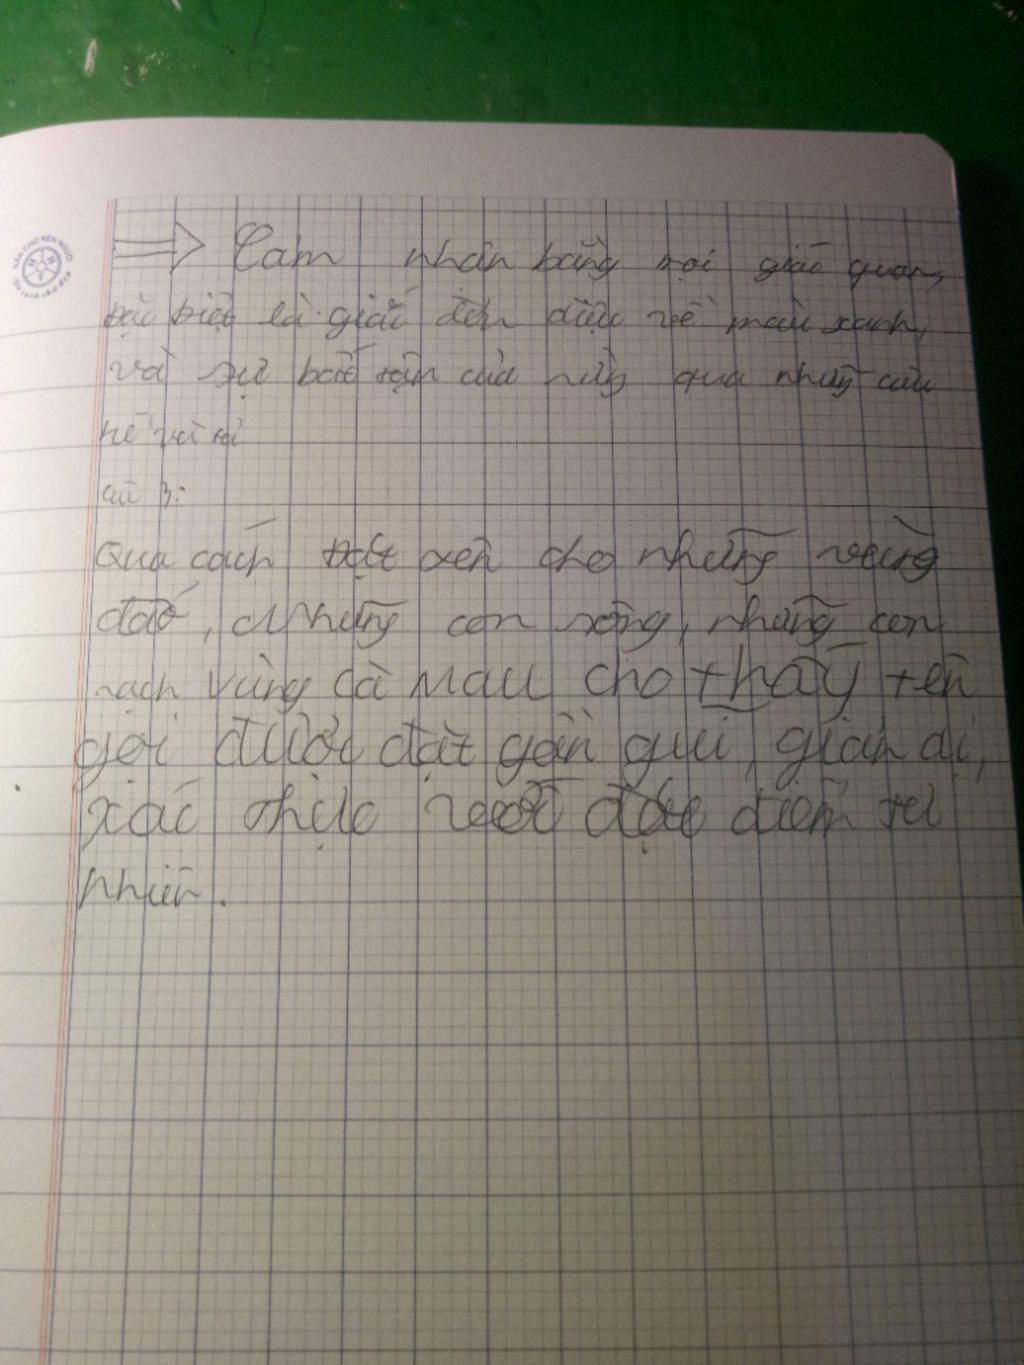 => Cảm nhận bằng mọi giác quan,
đặc biệt là giác độc điệu về màu xanh,
và sự bất tận của rừng qua những câu
kể và tả
câu 3:
Qua cách đặt tên cho những vùng
đất, những con sông, những con
rạch vùng Cà Mau cho thấy tên
gọi được đặt gần gũi, giản dị,
xác thực với đặc điểm tự
nhiên.